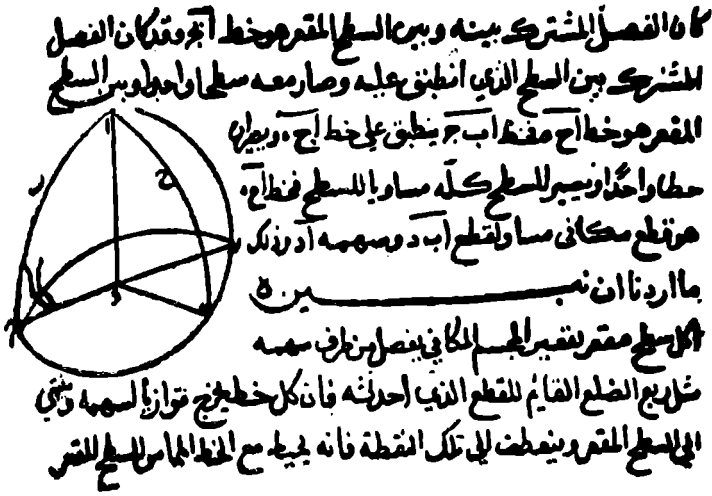 كان الفصل المشترك بينه وبين السطح المقعر هو خط آبج وقد كان الفصل
المشترك بين السطح الذي انطبق عليه وصار معه سطحا واحدا وبين السطح
المقعر هو خط آح فخط آب ج ينطبق على خط آج ويصيران
خطا واحدا ويصير السطح كله مساويا للسطح فخط آج
هو قطع مكافى مساو لقطع آب د وسهمه آد وذلك
ما اردنا ان نبـــين ه
كل سطح مقعر لقعير المجسم المكافي يفصل من طرف سهمه
مثل ربع الضلع القايم للقطع الذي احدثه فان كل خط يخرج موازيا لسهمه وينتهي
الى السطح المقعر وينعطف الى تلك النقطة فانه يحيط مع الخط المماس للسطح المقعر
ا
ر
ح
د